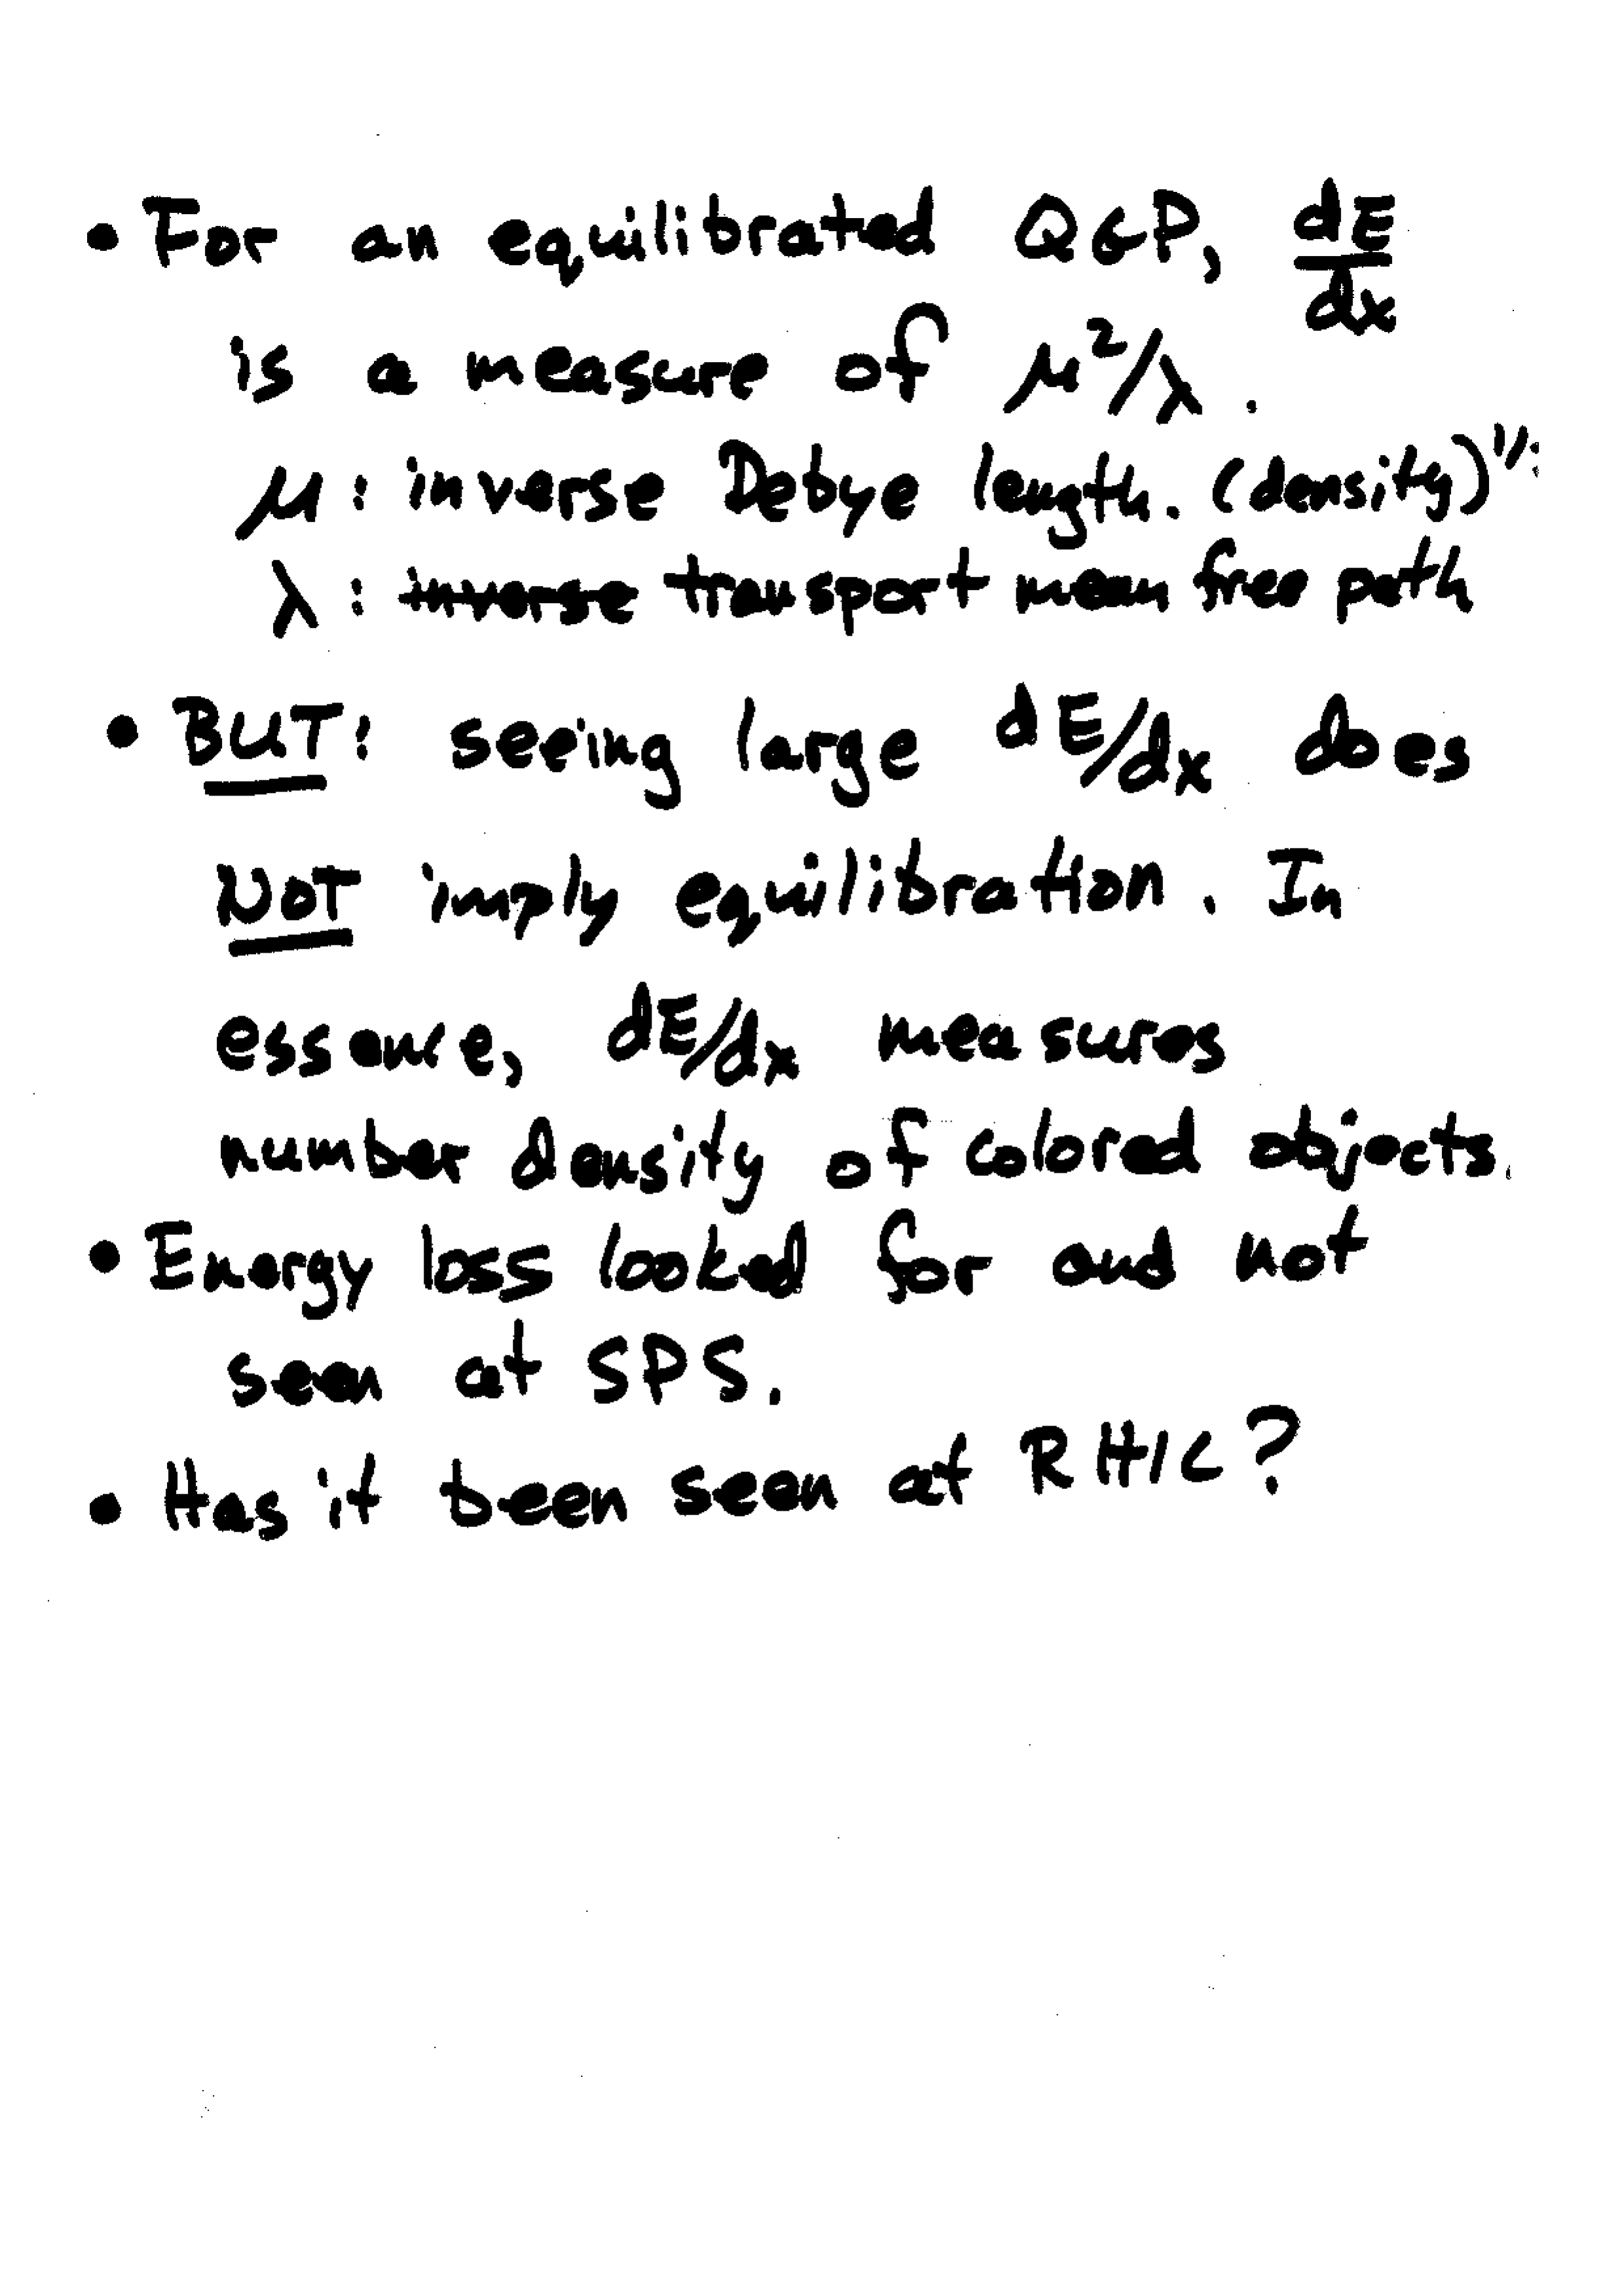 • For an equilibrated QGP, dE/dx
is a measure of μ²/λ.
μ: inverse Debye length. (density)
λ: inverse transport mean free path
• BUT: seeing large dE/dx does
NOT imply equilibration. In
essence, dE/dx measures
number density of colored objects.
• Energy loss looked for and not
seen at SPS.
• Has it been seen at RHIC?